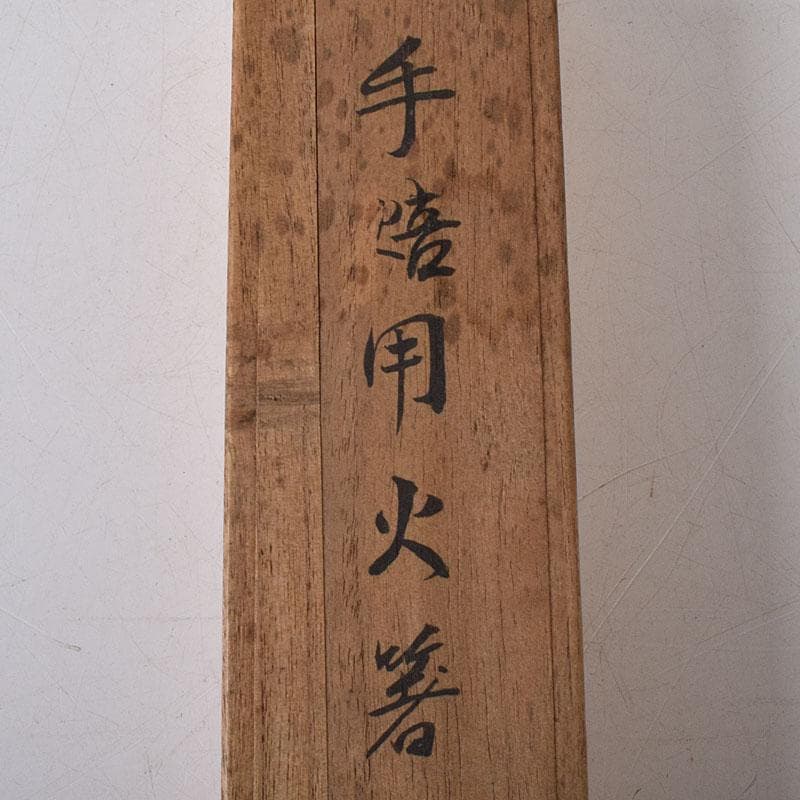 手焙用火箸